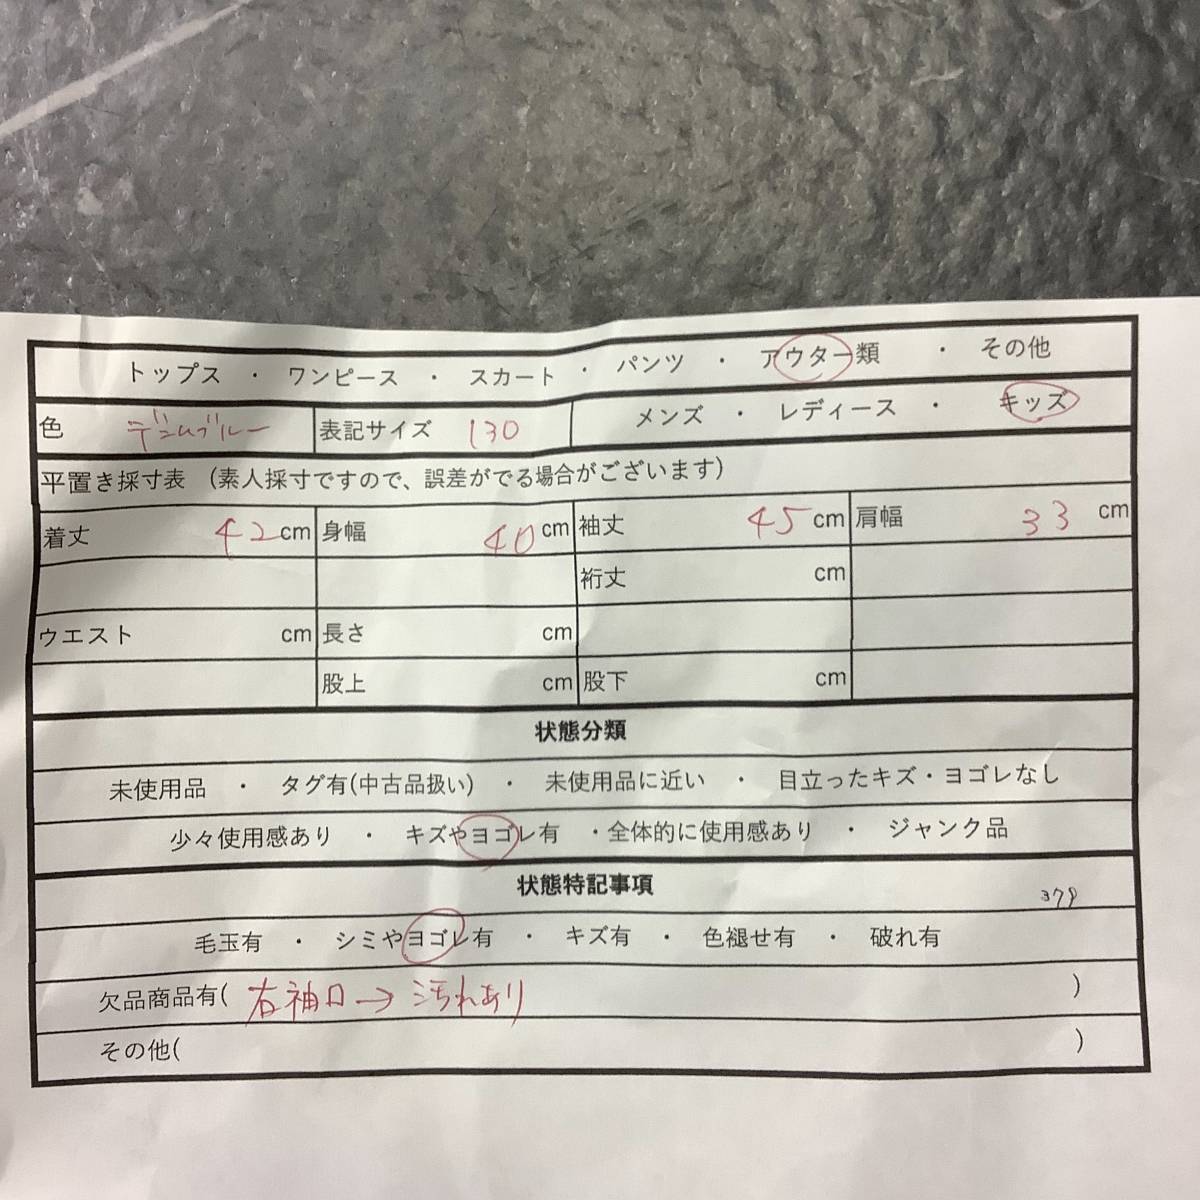 トップス ・ ワンピース ・ スカート ・ パンツ ・ アウター類 ・ その他
色 デニムブルー 表記サイズ 130 メンズ ・ レディース ・ キッズ
平置き採寸表 (素人採寸ですので、誤差がでる場合がございます)
着丈 42cm 身幅 40cm 袖丈 45cm 肩幅 33cm
裄丈 cm
ウエスト cm 長さ cm
股上 cm 股下 cm
状態分類
未使用品 ・ タグ有(中古品扱い) ・ 未使用品に近い ・ 目立ったキズ・ヨゴレなし
少々使用感あり ・ キズやヨゴレ有 ・全体的に使用感あり ・ ジャンク品
状態特記事項 379
毛玉有 ・ シミやヨゴレ有 ・ キズ有 ・ 色褪せ有 ・ 破れ有
欠品商品有( 右袖口→汚れあり )
その他( )